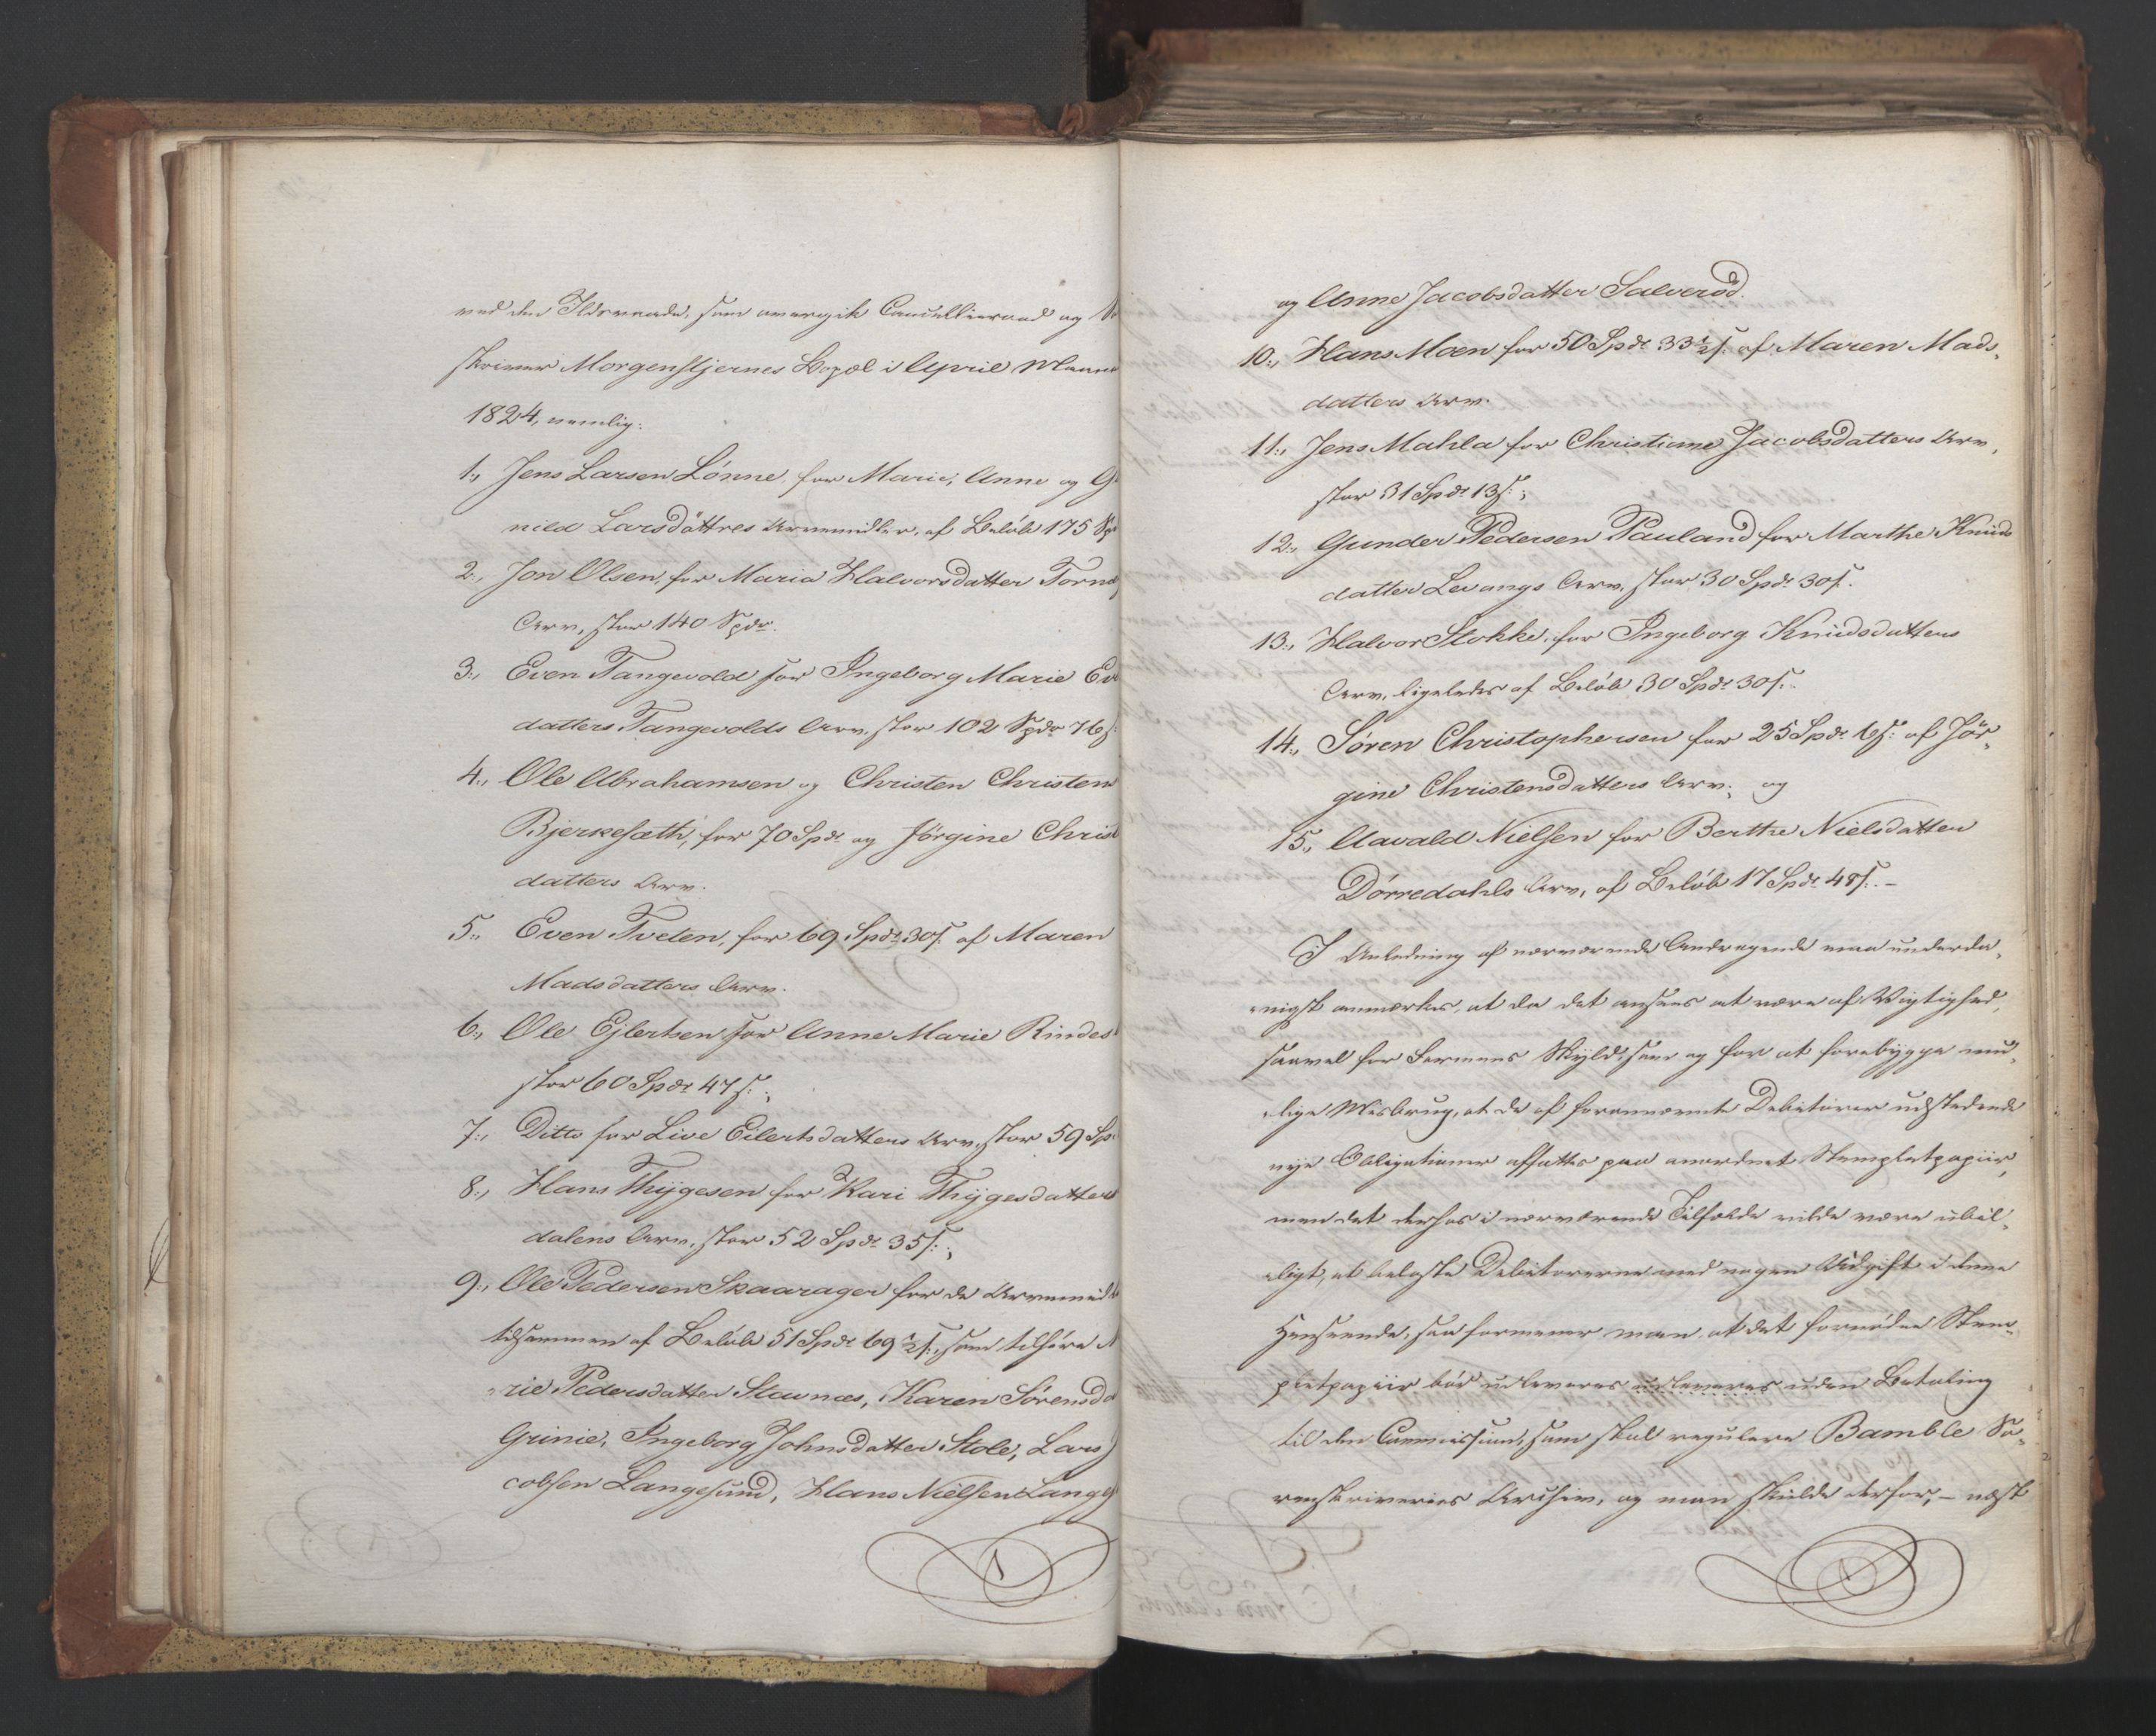 ved den Ildsvaade, som overgik Cancellieraad og
skriver Morgenstjernes Bopæl i April Maaned
1824, nemlig:
1., Jens Larsen Lønne for Marie, Anne og G
nild Larsdöttres Arvemidler, af Beløb 175 Sp
2., Jon Olsen, for Maria Halvorsdatter Tornæs
Arv, stor 140 Spdr.
3., Even Tangevold for Ingeborg Marie Ev
datters Tangevolds Arv, stor 102 Spdr 76 s:
4., Ole Abrahamsen og Christen Christens
Bjerkesæth, for 70 Spdr og Jørgine Christ
datters Arv.
5., Even Tveten, for 69 Spdr 30 s. af Maren
Madsdatters Arv.
6., Ole Ejlertsen for Anne Marie Rindes
stor 60 Spdr 47 s:;
7., Ditto for Live Eilertsdatters Arv, stor 59 Sp
8., Hans Thygesen for Kari Thygesdatters
dalens Arv, stor 52 Spdr 35 s:;
9., Ole Pedersen Skaarager for de Arvemidl
tilsammen af Beløb 51 Spdr 69 1/2 s:, som tilhøre M
rie Pedersdatter Stavnæs, Karen Sørensda
Grinie, Ingeborg Johnsdatter Stole, Lars J
cobsen Langesund, Hans Nielsen Lange
og Anne Jacobsdatter Salverød.
10., Hans Moen for 50 Spdr 33 1/2 s: af Maren Mads-
datters Arv.
11., Jens Mahla for Christiane Jacobsdatters Arv,
stor 31 Spdr 13 s:;
12., Gunder Pedersen Pauland for Marthe Knuds
datter Levangs Arv, stor 30 Spdr 30 s.
13., Halvor Stokke, for Ingeborg Knudsdatters
Arv, ligeledes af Beløb 30 Spdr 30 s:.
14., Søren Christophersen for 25 Spdr 6 s: af Jør-
gine Christensdatters Arv; og
15., Aavald Nielsen for Berthe Nielsdatter
Dørredahls Arv, af Beløb 17 Spdr 48 s. -
I Anledning af nærværende Andragende maa underda-
nigst anmærkes, at da det ansees at være af Vigtighed,
saavel for Formens Skyld, som og for at forebygge mu-
lige Misbrug, at de af forannævnte Debitorer udstedende
nye Obligationer affattes paa anordnet Stempletpapiir,
men det derhos i nærværende Tilfælde vilde være ubil-
ligt, at belaste Debitorerne med nogen Udgift i denne
Henseende, saa formener man, at det fornødne Stem-
pletpapiir bør udleveres udleveres uden Betaling
til den Commission, som skal regulere Bamble So-
renskriveries Archiv, og man skulde derfor, - næst